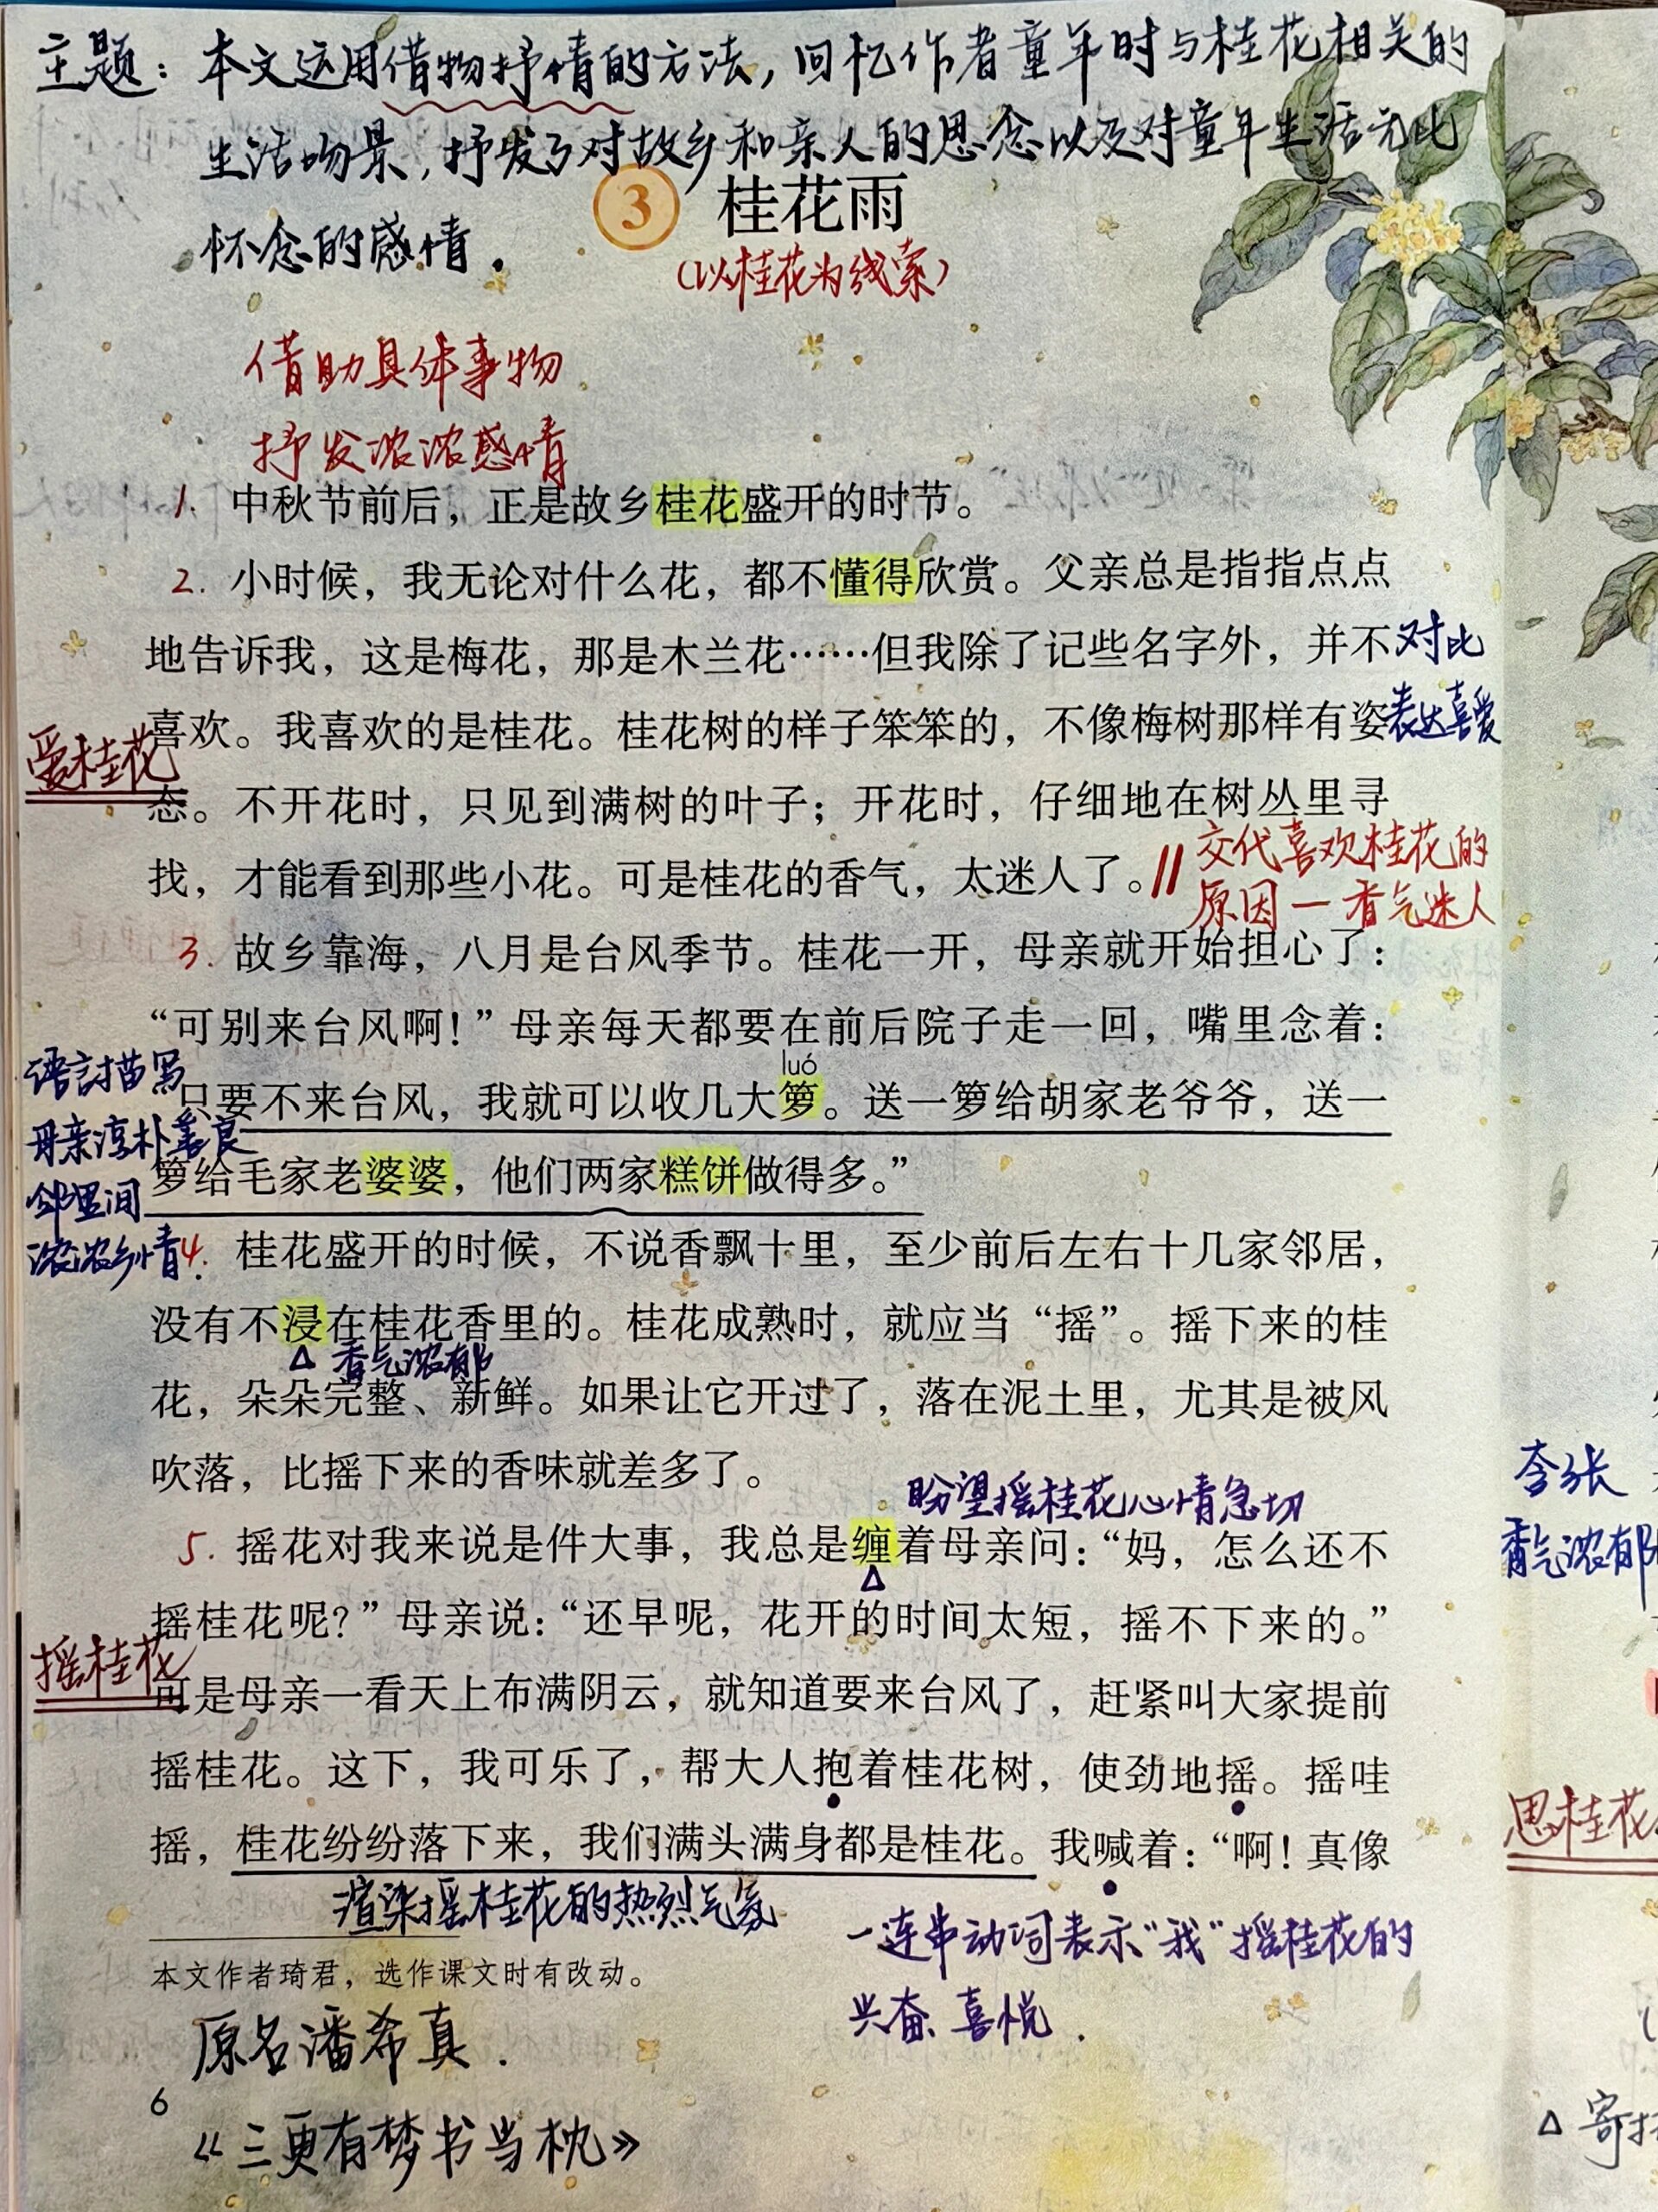 主题：本文运用借物抒情的方法，回忆作者童年时与桂花相关的
生活场景，抒发了对故乡和亲人的思念以及对童年生活无比
怀念的感情．
3 桂花雨
（以桂花为线索）
借助具体事物
抒发浓浓感情
1. 中秋节前后，正是故乡桂花盛开的时节。
2. 小时候，我无论对什么花，都不懂得欣赏。父亲总是指指点点
地告诉我，这是梅花，那是木兰花……但我除了记些名字外，并不
对比
喜欢。我喜欢的是桂花。桂花树的样子笨笨的，不像梅树那样有姿
表达喜爱
爱桂花
态。不开花时，只见到满树的叶子；开花时，仔细地在树丛里寻
找，才能看到那些小花。可是桂花的香气，太迷人了。
交代喜欢桂花的
原因一香气迷人
3. 故乡靠海，八月是台风季节。桂花一开，母亲就开始担心了：
“可别来台风啊！”母亲每天都要在前后院子走一回，嘴里念着：
luó
“只要不来台风，我就可以收几大箩。送一箩给胡家老爷爷，送一
箩给毛家老婆婆，他们两家糕饼做得多。”
语言描写
母亲淳朴善良
邻里间
浓浓乡情
4. 桂花盛开的时候，不说香飘十里，至少前后左右十几家邻居，
没有不浸在桂花香里的。桂花成熟时，就应当“摇”。摇下来的桂
△ 香气浓郁
花，朵朵完整、新鲜。如果让它开过了，落在泥土里，尤其是被风
吹落，比摇下来的香味就差多了。
盼望摇桂花心情急切
5. 摇花对我来说是件大事，我总是缠着母亲问：“妈，怎么还不
△
摇桂花呢？”母亲说：“还早呢，花开的时间太短，摇不下来的。”
摇桂花
可是母亲一看天上布满阴云，就知道要来台风了，赶紧叫大家提前
摇桂花。这下，我可乐了，帮大人抱着桂花树，使劲地摇。摇哇
摇，桂花纷纷落下来，我们满头满身都是桂花。我喊着：“啊！真像
渲染摇桂花的热烈气氛
一连串动词表示“我”摇桂花的
兴奋、喜悦．
本文作者琦君，选作课文时有改动。
原名潘希真．
6
《三更有梦书当枕》
夸张
香气浓郁
思桂花
△ 寄